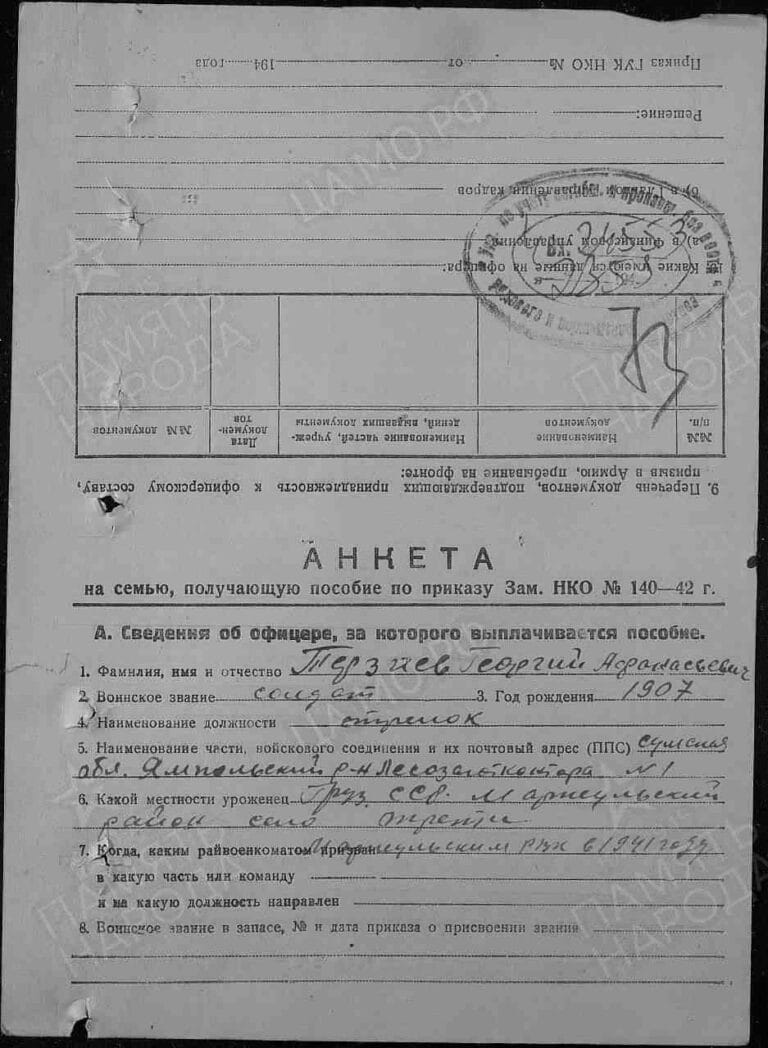 Приказ ГУК НКО № от 194 года
Решение:
б) в Главном управлении кадров
а) в Финансовом управлении
Какие имеются данные на офицера:
Вх.
№№ п/п.
Наименование документов
Наименование частей, учреждений, выдавших документы
Дата документов
№№ документов
9. Перечень документов, подтверждающих принадлежность к офицерскому составу,
призыв в Армию, пребывание на фронте:
АНКЕТА
на семью, получающую пособие по приказу Зам. НКО № 140—42 г.
А. Сведения об офицере, за которого выплачивается пособие.
1. Фамилия, имя и отчество Терзиев Георгий Афанасьевич
2. Воинское звание солдат 3. Год рождения 1907
4. Наименование должности стрелок
5. Наименование части, войскового соединения и их почтовый адрес (ППС) Сумская
обл. Ямпольский р-н Лесозагот контора №1
6. Какой местности уроженец Груз. ССР. Марнеульский
район село
7. Когда, каким райвоенкоматом призван Марнеульским РВК в 1941 году
в какую часть или команду
и на какую должность направлен
8. Воинское звание в запасе, № и дата приказа о присвоении звания
ЦАМО.РФ
ПАМЯТЬ
НАРОДА